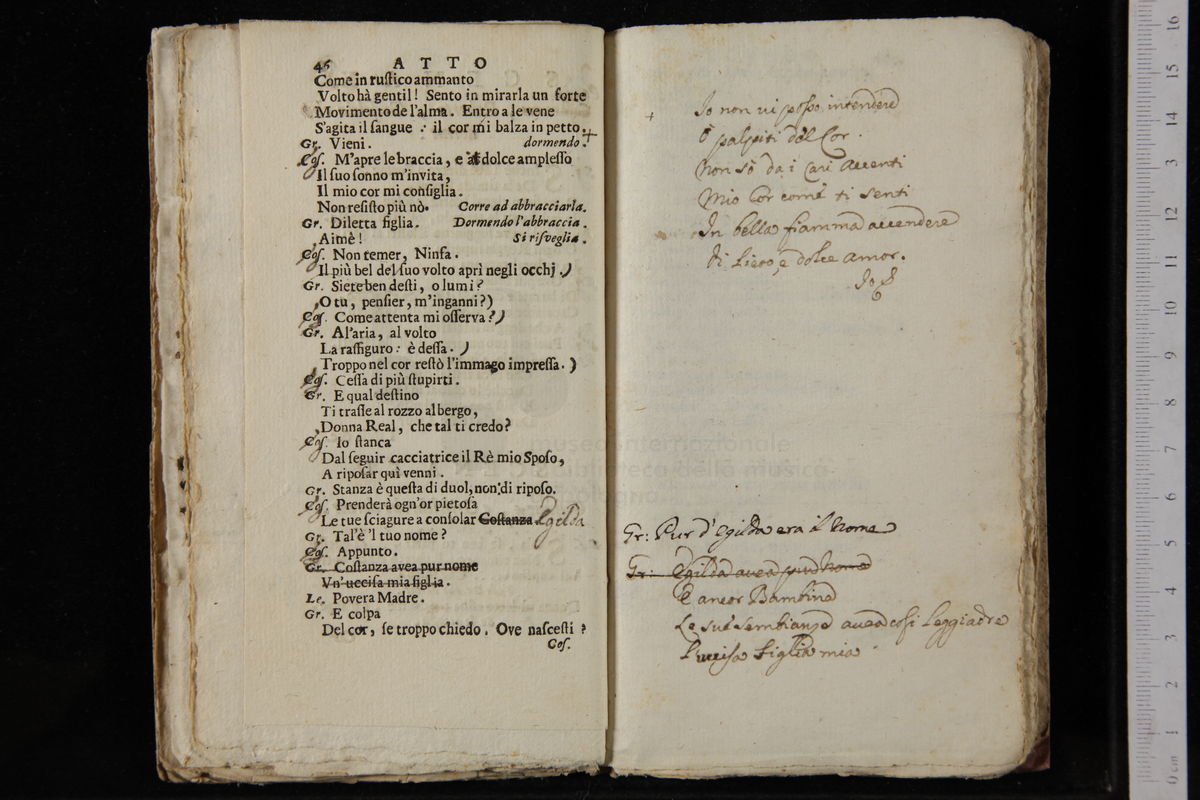 46 ATTO
Come in rustico ammanto
Volto hà gentil! Sento in mirarla un forte
Movimento de l'alma. Entro a le vene
S'agita il sangue : il cor mi balza in petto. +
Gr. Vieni. dormendo.
Cos. M'apre le braccia, e al dolce amplesso
Il suo sonno m'invita,
Il mio cor mi consiglia.
Non resisto più nò. Corre ad abbracciarla.
Gr. Diletta figlia. Dormendo l'abbraccia.
Aimè! Si risveglia.
Cos. Non temer, Ninfa.
Il più bel del suo volto aprì negli occhj.)
Gr. Siete ben desti, o lumi?
O tu, pensier, m'inganni?)
Cos. Come attenta mi osserva?)
Gr. Al'aria, al volto
La raffiguro: è dessa.)
Troppo nel cor restò l'immago impressa.)
Cos. Cessa di più stupirti.
Gr. E qual destino
Ti trasse al rozzo albergo,
Donna Real, che tal ti credo?
Cos. Io stanca
Dal seguir cacciatrice il Rè mio Sposo,
A riposar quì venni.
Gr. Stanza è questa di duol, non di riposo.
Cos. Prenderà ogn'or pietosa
Le tue sciagure a consolar Costanza. Egilda
Gr. Tal'è 'l tuo nome?
Cos. Appunto.
Gr. Costanza avea pur nome
Un' uccisa mia figlia.
Le. Povera Madre.
Gr. E colpa
Del cor, se troppo chiedo. Ove nascesti?
Cos.
+ Io non vi posso intendere
O palpiti del Cor.
Non sò da i Cari accenti
Mio Cor com'è ti senti
In bella fiamma accendere
Di Lieto, e dolce amor.
Gr: Pur d'Egilda era il Nome
Gr: Egilda avea pur Nome
E ancor Bambina
Le sue sembianze avea così Leggiadre
L'uccisa Figlia mia